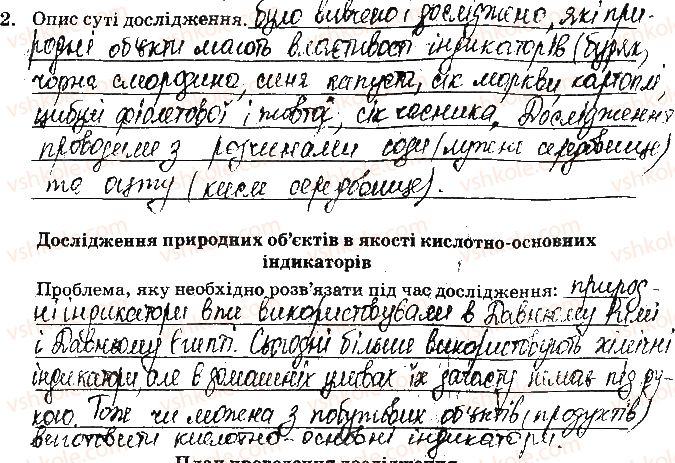 2. Опис суті дослідження. Було вивчено і досліджено, які при-
родні об'єкти мають властивості індикаторів (буряк,
чорна смородина, синя капуста, сік моркви, картоплі,
цибулі фіолетової і жовтої, сік часника. Дослідження
проводили з розчинами соди (лужне середовище)
та оцту (кисле середовище).
Дослідження природних об'єктів в якості кислотно-основних
індикаторів
Проблема, яку необхідно розв'язати під час дослідження: природ-
ні індикатори вже використовували в Давньому Римі
і Давньому Єгипті. Сьогодні більше використовують хімічні
індикатори, але в домашніх умовах їх зачасту немає під ру-
кою. Тож чи можна з побутових об'єктів (продуктів)
виготовити кислотно-основні індикатори.
План проведення дослідження